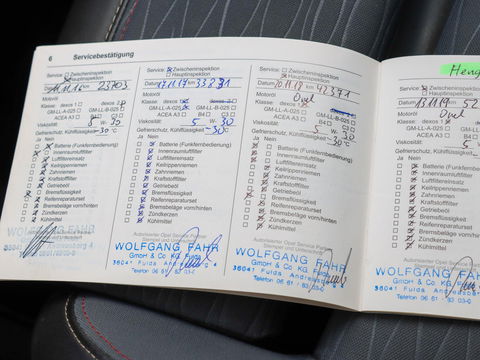 6 Servicebestätigung
Service: Zwischeninspektion
Hauptinspektion
11.11.16 km 23703
Motoröl
Klasse: dexos 1 dexos 2
GM-LL-A-025 GM-LL-B-025
ACEA A3 B4 C3
Viskosität: 5 W 30
Gefrierschutz, Kühlflüssigkeit -30 °C
Ja Nein
Batterie (Funkfernbedienung)
Innenraumluftfilter
Luftfiltereinsatz
Keilrippenriemen
Zahnriemen
Kraftstoffilter
Getriebeöl
Bremsflüssigkeit
Reifenreparaturset
Bremsbeläge vorn/hinten
Zündkerzen
Kühlmittel
Service: Zwischeninspektion
Hauptinspektion
Datum 17.11.17 km 33271
Motoröl
Klasse: dexos 1 dexos 2
GM-LL-A-025 GM-LL-B-025
ACEA A3 B4 C3
Viskosität: 5 W 30
Gefrierschutz, Kühlflüssigkeit -30 °C
Ja Nein
Batterie (Funkfernbedienung)
Innenraumluftfilter
Luftfiltereinsatz
Keilrippenriemen
Zahnriemen
Kraftstoffilter
Getriebeöl
Bremsflüssigkeit
Reifenreparaturset
Bremsbeläge vorn/hinten
Zündkerzen
Kühlmittel
Autorisierter Opel Service Partner
WOLFGANG FAHR
GmbH & Co KG
36041 Fulda
Telefon 06 61 / 83 03-0
Service: Zwischeninspektion
Hauptinspektion
Datum 20.11.18 km 42371
Motoröl Opel
Klasse: dexos 1
GM-LL-A-025 GM-LL-B-025
ACEA A3 B4 C3
Viskosität: 5 W 30
Gefrierschutz, Kühlflüssigkeit -30 °C
Ja Nein
Batterie (Funkfernbedienung)
Innenraumluftfilter
Luftfiltereinsatz
Keilrippenriemen
Zahnriemen
Kraftstoffilter
Getriebeöl
Bremsflüssigkeit
Reifenreparaturset
Bremsbeläge vorn/hinten
Zündkerzen
Kühlmittel
Autorisierter Opel Service Partner
Stempel und Unterschrift
WOLFGANG FAHR
GmbH & Co KG Fulda
36041 Fulda Andreasberg
Telefon 06 61 / 83 03-0
Heng
Service:
13.11.19 km 52
Motoröl Opel
Klasse: dexos 1
GM-LL-A-025
ACEA A3
Viskosität: 5
Gefrierschutz, Kühlflüssig
Ja Nein
Batterie (Funkfer
Innenraumluftfilter
Luftfiltereinsatz
Keilrippenriemen
Zahnriemen
Kraftstoffilter
Getriebeöl
Bremsflüssigkeit
Reifenreparaturset
Bremsbeläge vor
Zündkerzen
Kühlmittel
WOLFGANG
GmbH & Co
36041 Fulda
Telefon 06 61